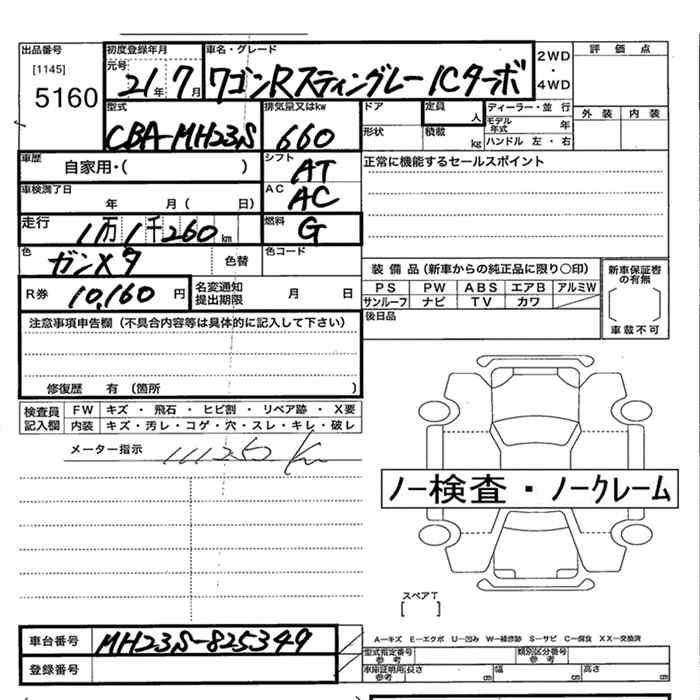 出品番号
[1145]
5160
初度登録年月
元号
21年 7月
車名・グレード
ワゴンRスティングレー ICターボ
2WD
・
4WD
評価点
外装 内装
型式
CBA-MH23S
排気量又はkw
660
ドア
形状
定員
人
積載
kg
ディーラー・並行
モデル年式 年
ハンドル 左・右
車歴
自家用・( )
シフト
AT
正常に機能するセールスポイント
車検満了日
年 月( 日)
AC
AC
走行
1万1千260km
燃料
G
色
ガンメタ
色替
色コード
R券 10,160 円
名変通知
提出期限
月 日
装備品(新車からの純正品に限り○印)
PS PW ABS エアB アルミW
サンルーフ ナビ TV カワ
新車保証書
の有無
車載不可
後日品
注意事項申告欄(不具合内容等は具体的に記入して下さい)
修復歴 有(箇所 )
検査員
記入欄
FW キズ・飛石・ヒビ割・リペア跡・X要
内装 キズ・汚レ・コゲ・穴・スレ・キレ・破レ
メーター指示
11126 Km
ノー検査・ノークレーム
スペアT
[ ]
車台番号 MH23S-825349
登録番号
A-キズ E-エクボ U-凹み W-補修跡 S-サビ C-腐食 XX-交換済
型式指定番号
参考
類別区分番号
参考
車庫証明用
参考
長さ cm 幅 cm 高さ cm